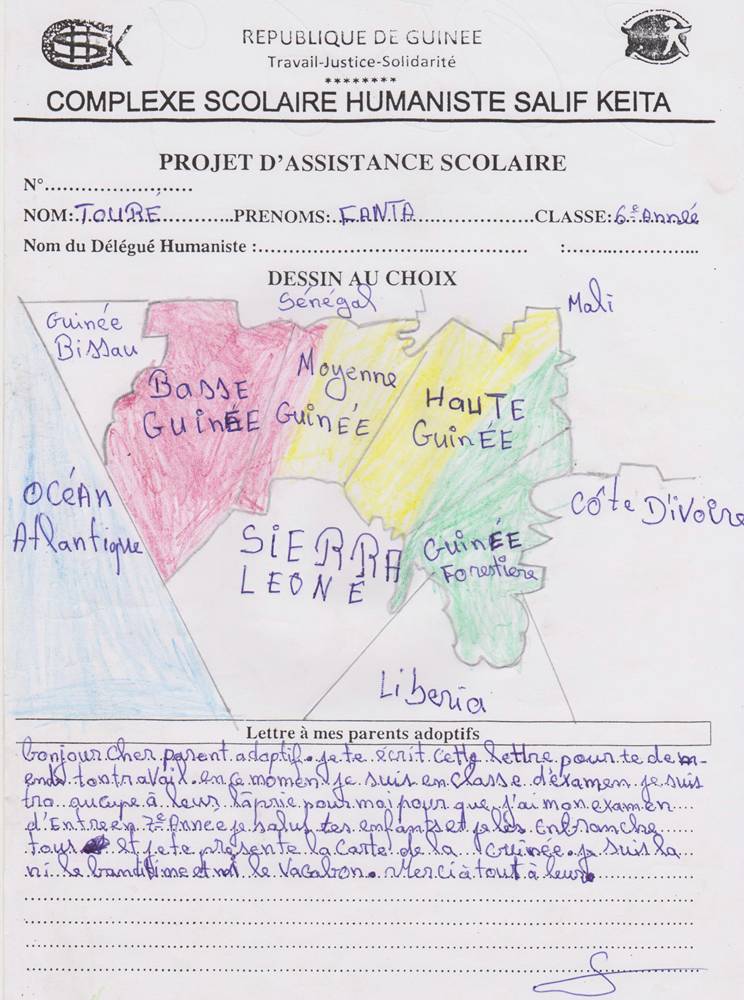 GHSK
REPUBLIQUE DE GUINEE
Travail-Justice-Solidarité
********
COMPLEXE SCOLAIRE HUMANISTE SALIF KEITA
PROJET D'ASSISTANCE SCOLAIRE
N°........................
NOM: TOURÉ PRENOMS: FANTA CLASSE: 6e Année
Nom du Délégué Humaniste :.................................................. :........................
DESSIN AU CHOIX
Guinée Bissau
Sénégal
Mali
BASSE GUINÉE
Moyenne GUINÉE
HAUTE GUINÉE
OCÉAN Atlantique
SIERRA LEONE
GUINÉE Forestiere
CÔte D'ivoire
Liberia
Lettre à mes parents adoptifs
bonjour cher parent adoptif. je te écrit cette lettre pour te dem-
ende ton travail. en ce momen je suis en classe d'éxamen je suis
tro oucupe à leur. làprie pour moi pour que j'ai mon examen
d'Entre en 7e Année je salut tes enfants et je les Enbranche
tous et je te présente la Carte de la Guinée. je suis la
ni le banditime et ni le vagabon. Merci à tout à leur.